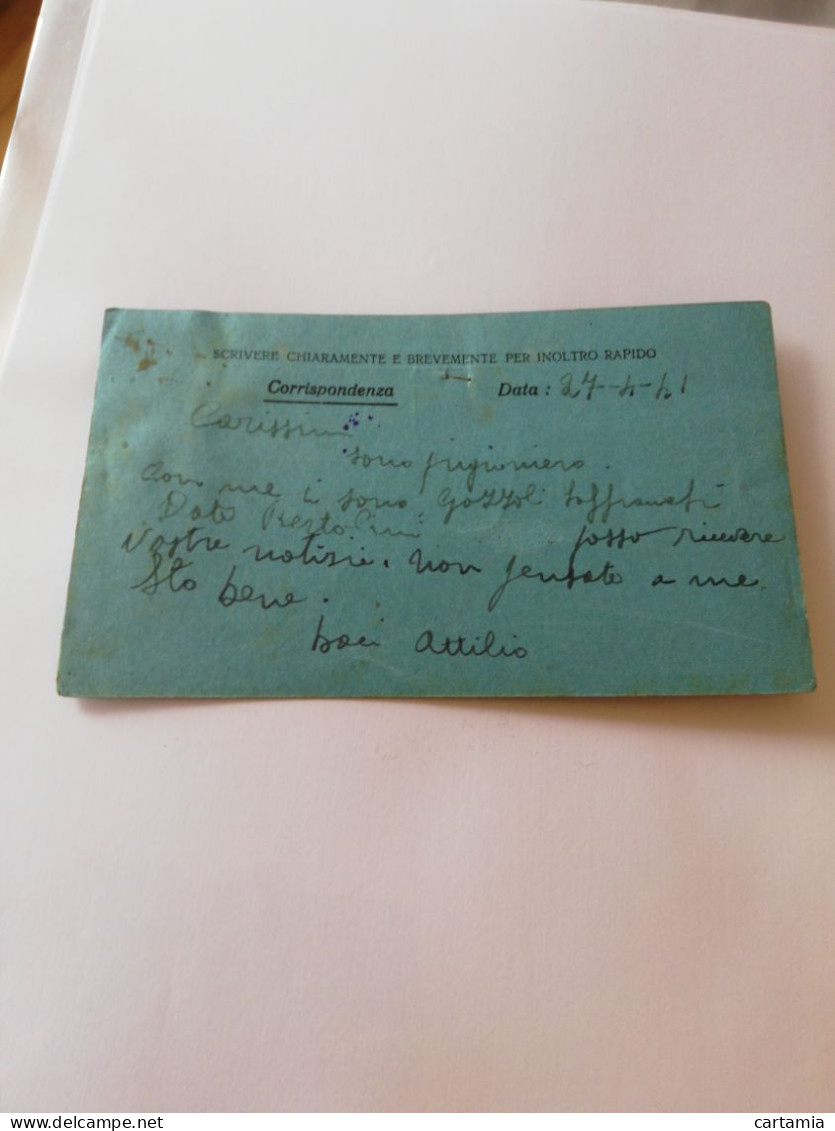 SCRIVERE CHIARAMENTE E BREVEMENTE PER INOLTRO RAPIDO
Corrispondenza Data : 27-4-41
Carissimi
sono prigioniero.
Con me ci sono Gozzoli
Dato Bertolini posso ricevere
vostre notizie. Non pensate a me
Sto bene.
baci Attilio
delcampe.net
cartamia